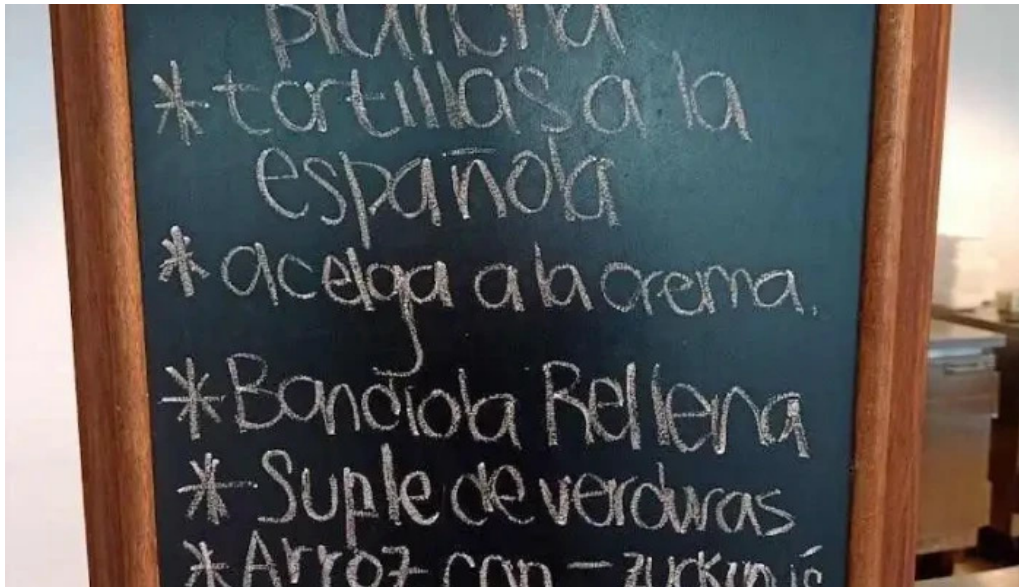 plancha
*tortillas a la
española
*acelga a la crema.
*Bondiola Rellena
*Suple de verduras
*Arroz con - zurkinis